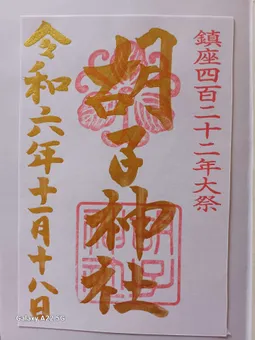 鎮座四百二十二年大祭
胡子神社
令和六年十一月十八日
Galaxy A22 5G